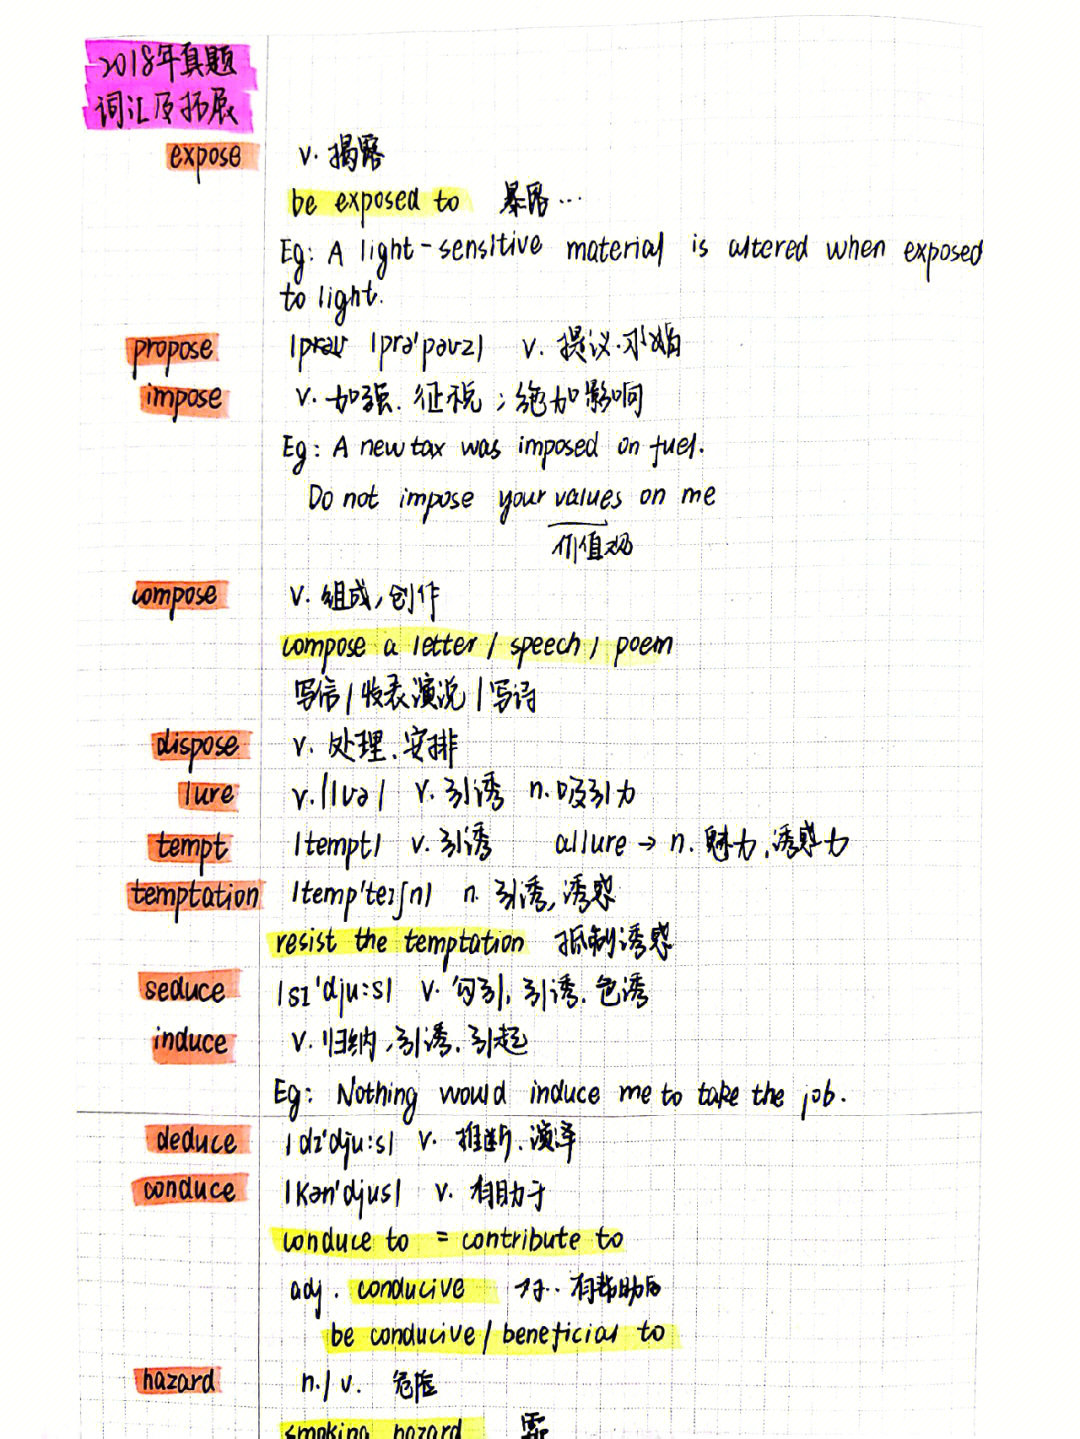 2018年真题
词汇及拓展
expose v. 揭露
be exposed to 暴露…
Eg: A light-sensitive material is altered when exposed
to light.
propose /prəʊ /prə'pəʊz/ v. 提议.求婚
impose v. 加强.征税;绝加影响
Eg: A new tax was imposed on fuel.
Do not impose your values on me
价值观
compose v. 组成,创作
compose a letter / speech / poem
写信/发表演说/写诗
dispose v. 处理.安排
lure v. /lʊə/ v. 引诱 n. 吸引力
tempt /tempt/ v. 引诱 allure → n. 魅力,诱惑力
temptation /temp'teɪʃn/ n. 引诱,诱惑
resist the temptation 抵制诱惑
seduce /sɪ'dju:s/ v. 勾引,引诱.色诱
induce v. 归纳,引诱.引起
Eg: Nothing would induce me to take the job.
deduce /dɪ'dju:s/ v. 推断.演泽
conduce /kən'djus/ v. 有助于
conduce to = contribute to
adj. conducive 对…有帮助的
be conducive / beneficial to
hazard n./v. 危险
smoking hazard 霾